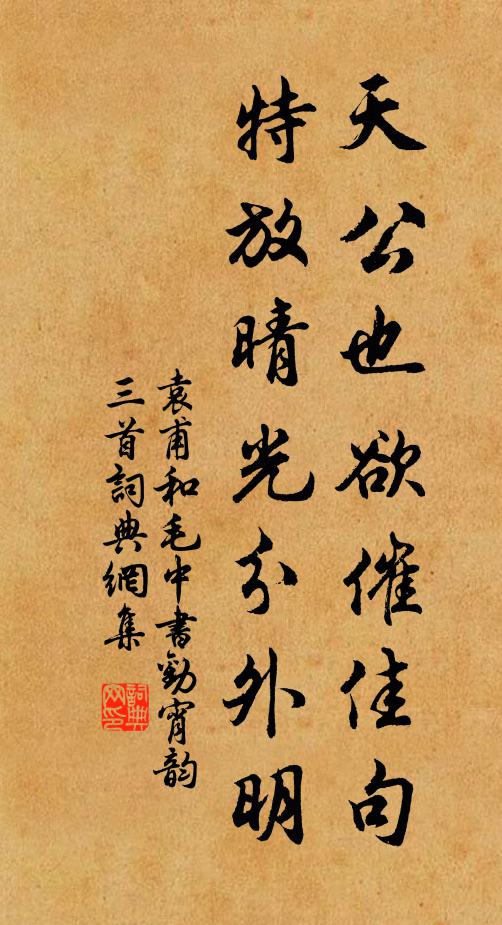 天公也欲催佳句
特放晴光分外明
袁甫和毛中書勸宵韵
三首詞典網集
詞典
网印